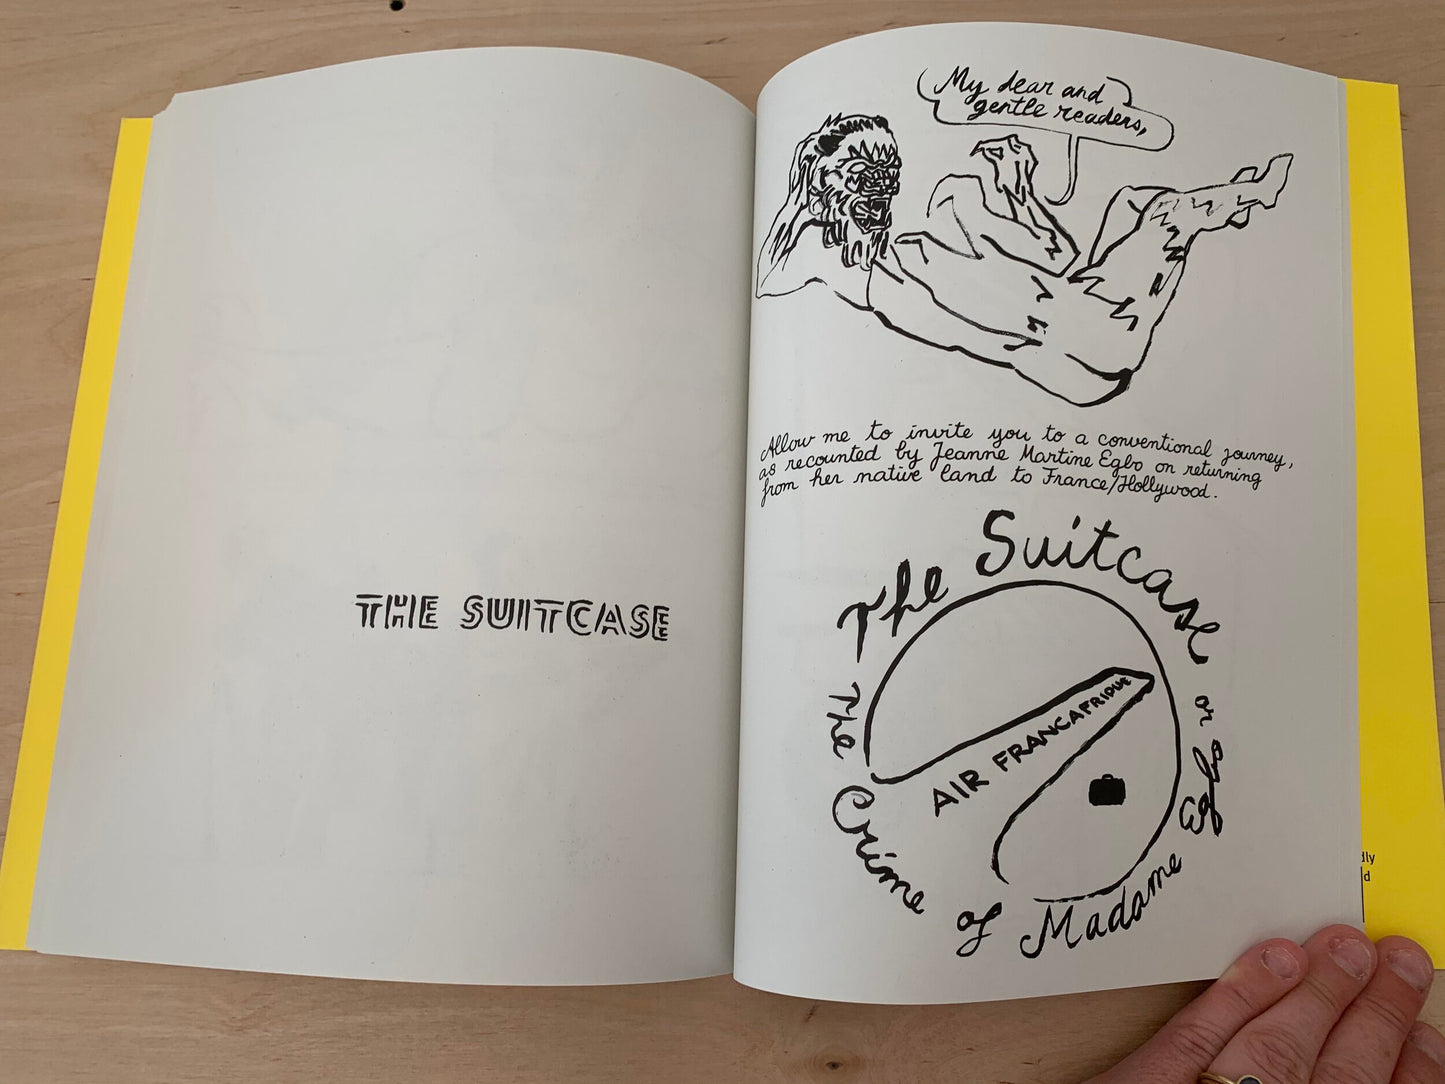 THE SUITCASE
My dear and
gentle readers,
Allow me to invite you to a conventional journey,
as recounted by Jeanne Martine Egbo on returning
from her native land to France/Hollywood.
The Suitcase
or
The Crime of Madame Egbo
AIR FRANCAFRIQUE